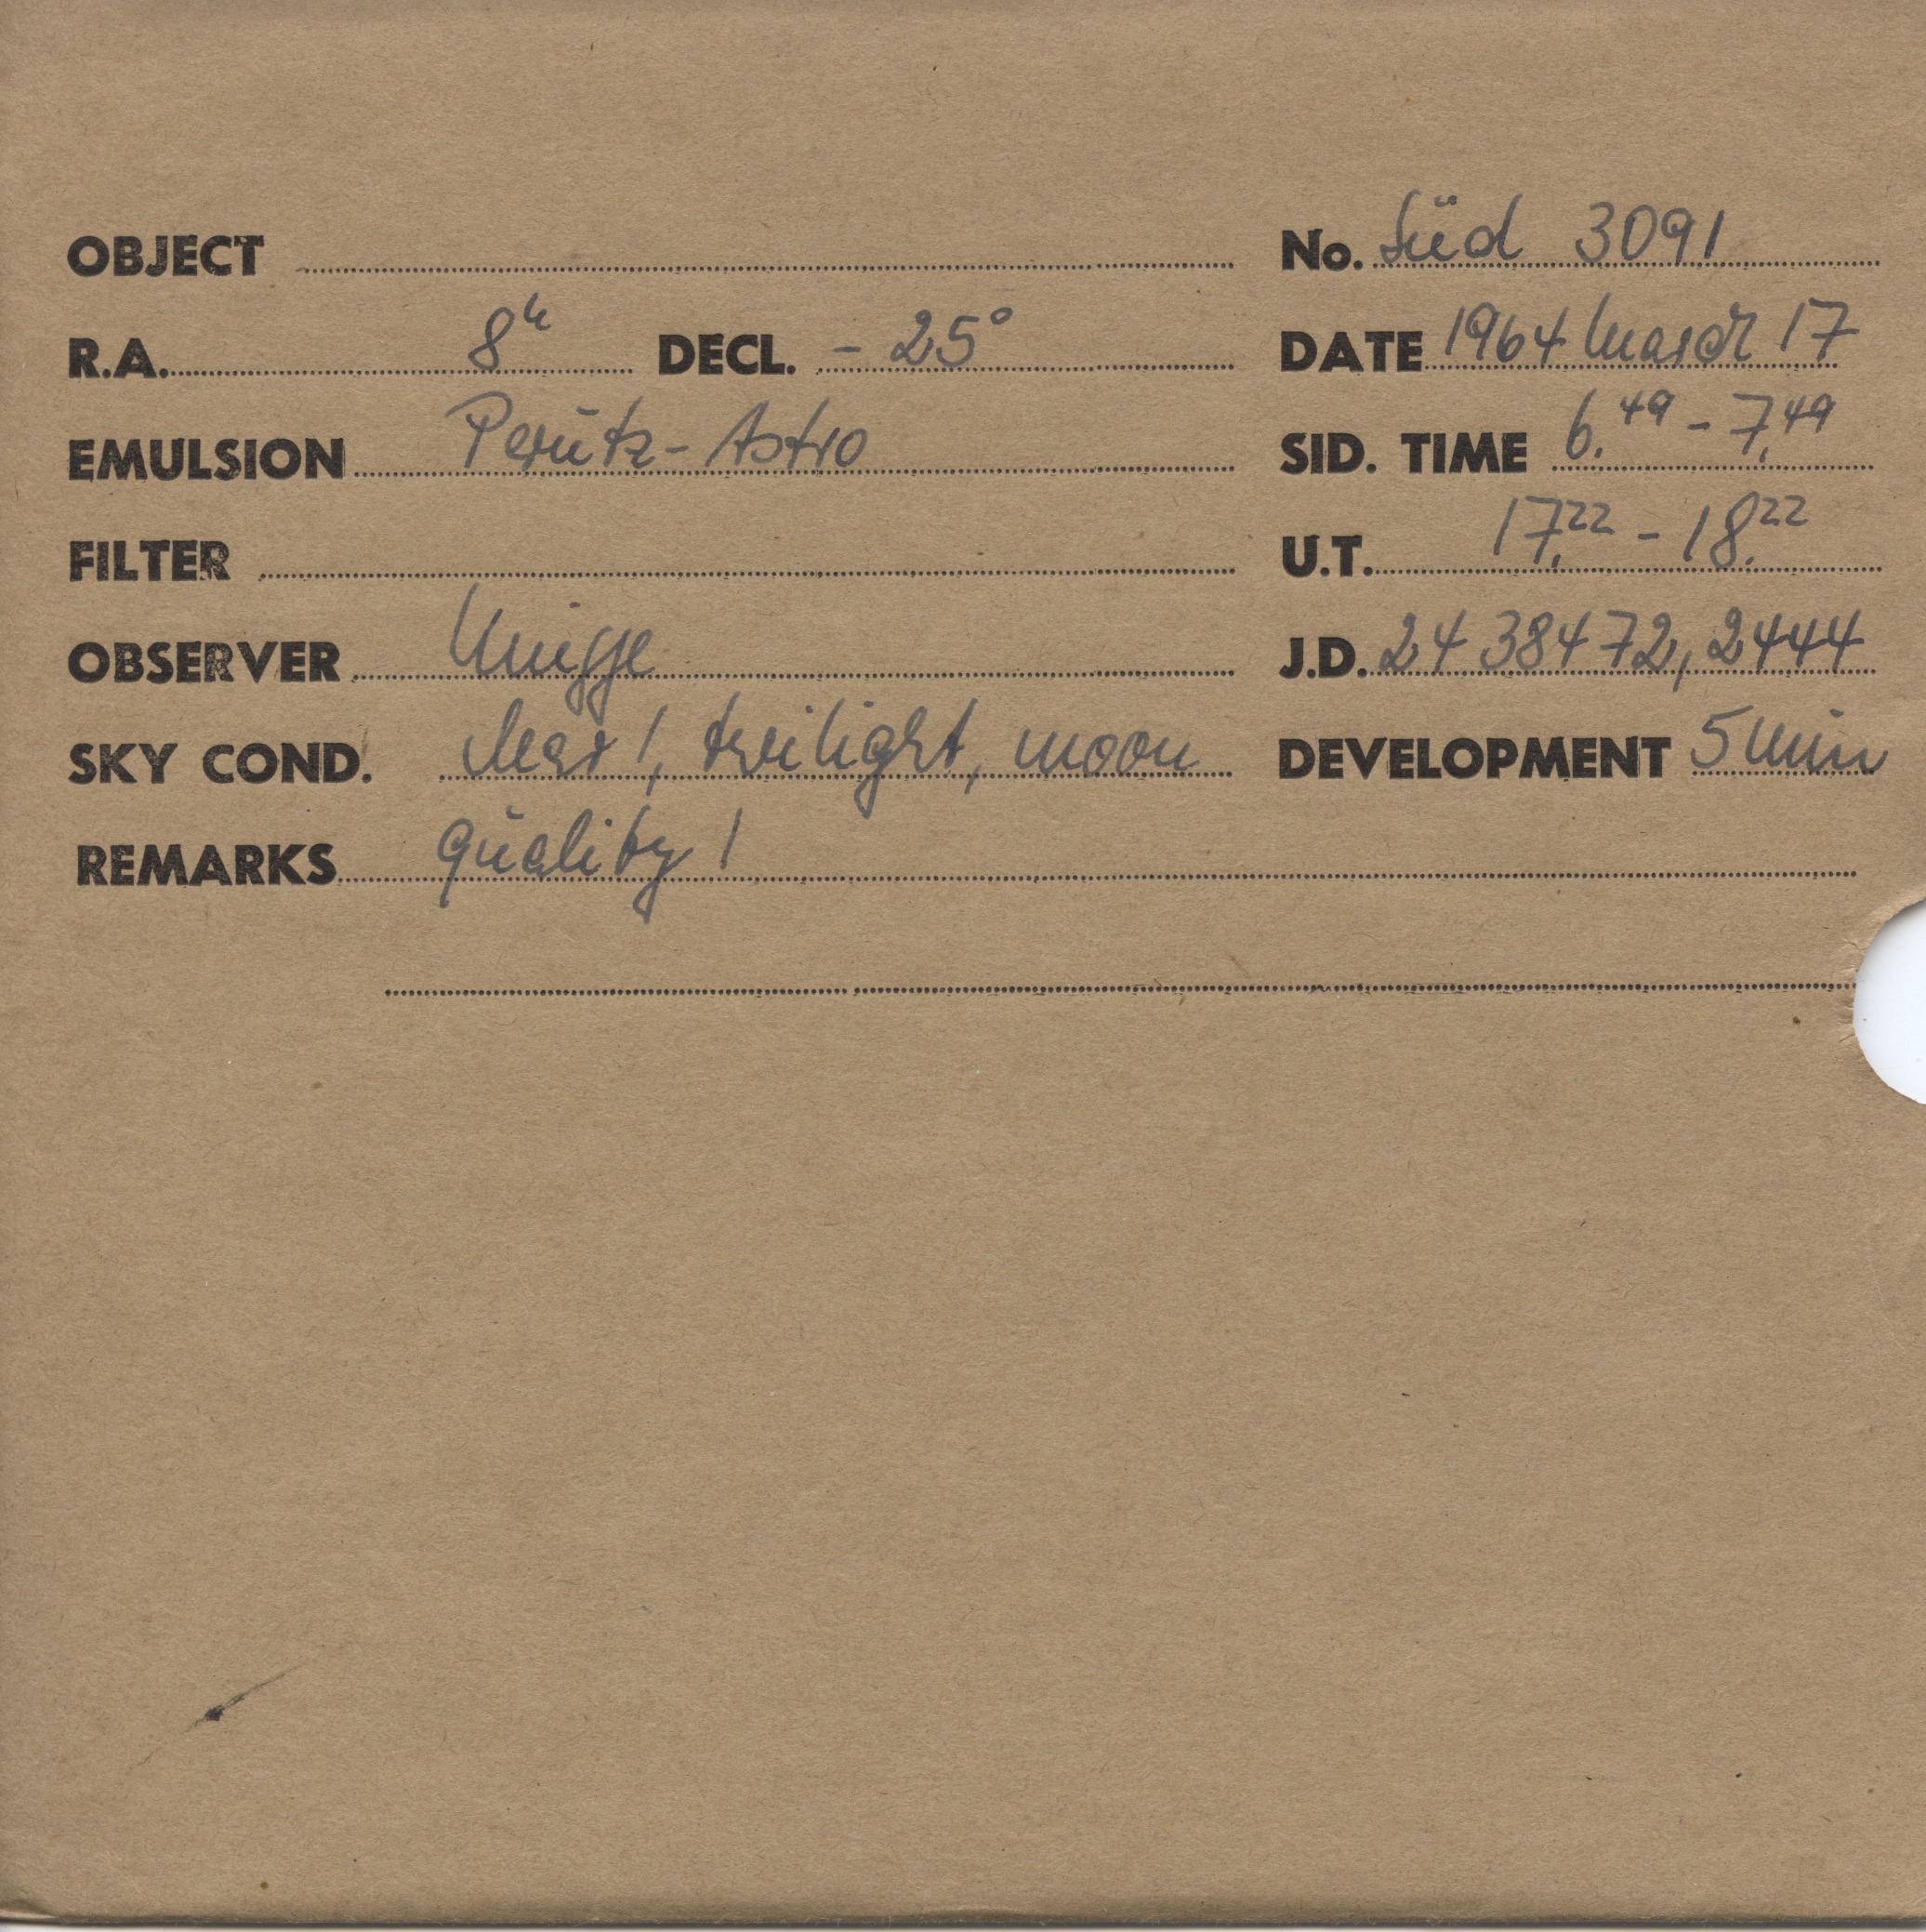 OBJECT No. Süd 3091
R.A. 8h DECL. - 25° DATE 1964 March 17
EMULSION Perutz - Astro SID. TIME 6.49 - 7.49
FILTER U.T. 17.22 - 18.22
OBSERVER J.D. 24 38472,2444
SKY COND. clear !, twilight, moon DEVELOPMENT 5 min
REMARKS quality !